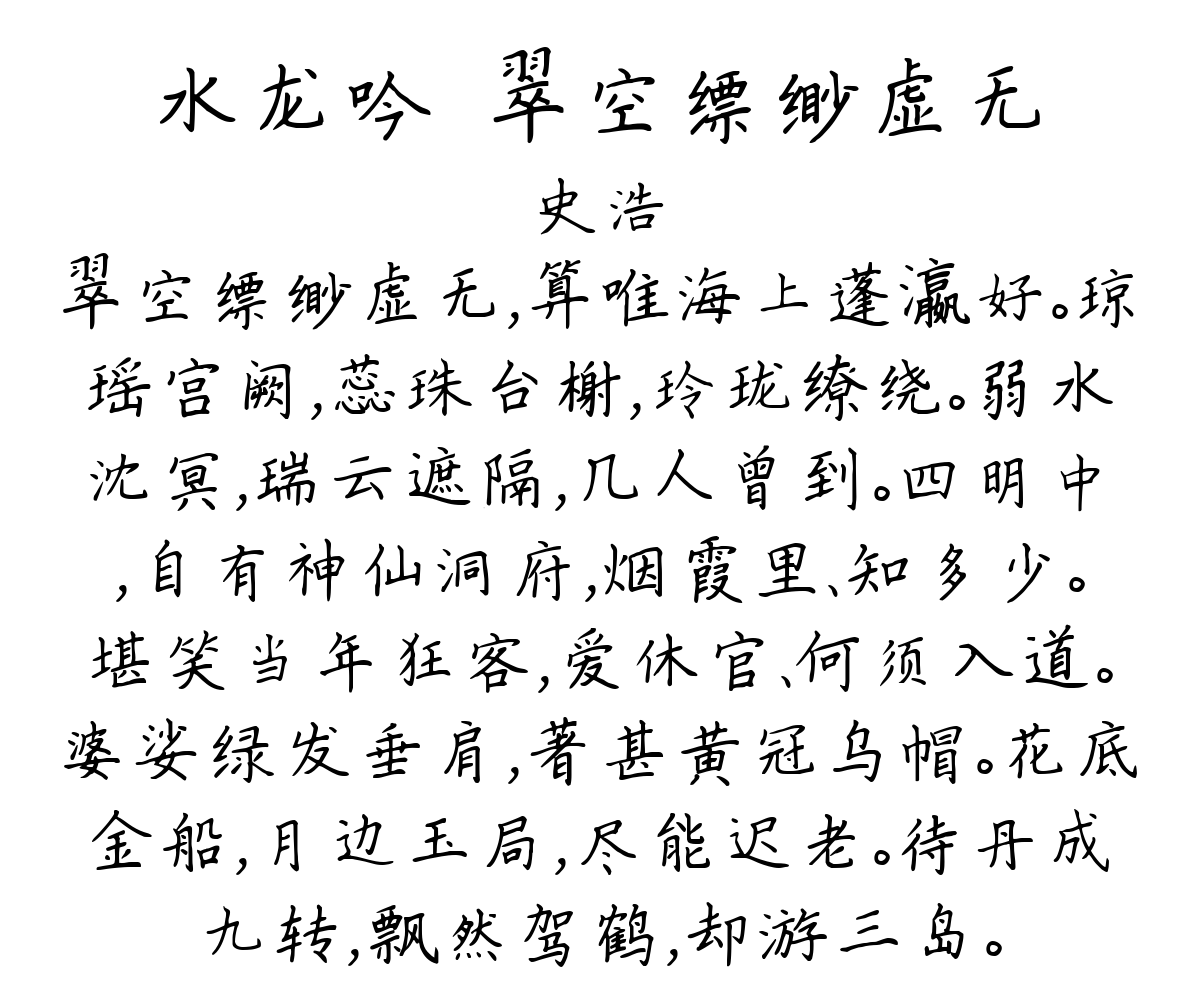 水龙吟 翠空缥缈虚无
史浩
翠空缥缈虚无,算唯海上蓬瀛好。琼
瑶宫阙,蕊珠台榭,玲珑缭绕。弱水
沈冥,瑞云遮隔,几人曾到。四明中
,自有神仙洞府,烟霞里、知多少。
堪笑当年狂客,爱休官、何须入道。
婆娑绿发垂肩,著甚黄冠乌帽。花底
金船,月边玉局,尽能迟老。待丹成
九转,飘然驾鹤,却游三岛。